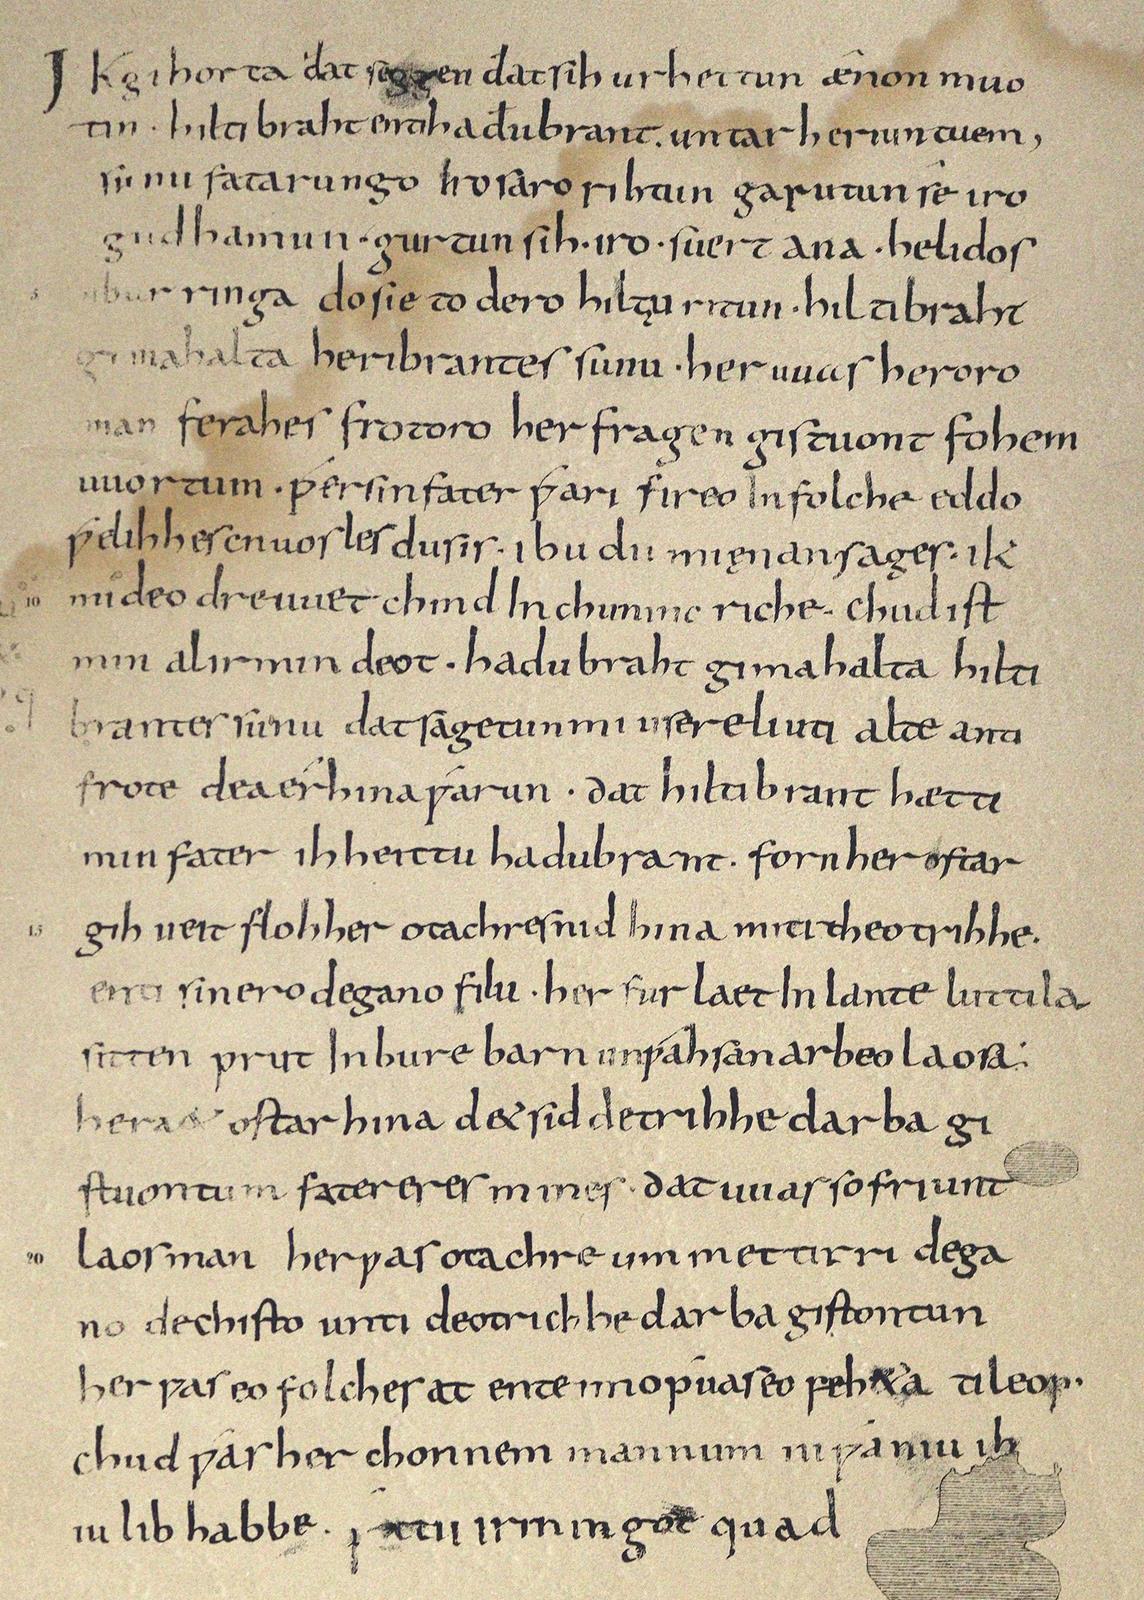 Ik gihorta đat seggen đat sih urhettun ænon muo
tin · hiltibraht enti hađubrant · untar heriun tuem ,
sunu fatarungo iro saro rihtun garutun sê iro
guđhamun · gurtun sih · iro · suert ana · helidos
5 ubur ringa do sie to dero hiltu ritun · hiltibraht
gimahalta heribrantes sunu · her uuas heroro
man ferahes frotoro her fragen gistuont fohem
uuortum · ƿer sin fater ƿari fireo In folche eddo
ƿelihhes cnuosles du sis · ibu du mi ęnan sages · ik
10 mi de odre uuet chind In chunincriche · chud ist
min al irmindeot · hadubraht gimahalta hilti
brantes sunu dat sagetun mi usere liuti alte anti
frote dea érhina ƿarun · dat hiltibrant hætti
min fater ih heittu hadubrant · forn her ostar
15 gihueit floh her otachres nid hina miti theotrihhe ·
enti sinero degano filu · her furlaet In lante luttila
sitten prut In bure barn unƿahsan arbeo laosa :
heraet ostar hina d& sid detrihhe darba gi
stuontum fatereres mines · dat uuas so friunt
20 laos man her ƿas otachre ummettirri dega
no dechisto unti deotrichhe darba gistontun
her ƿas eo folches at ente imo ƿuas eo feh&a ti leop ·
chud ƿas her chonnem mannum ni ƿaniu ih
iu lib habbe · ƿ&tu irmingot quad